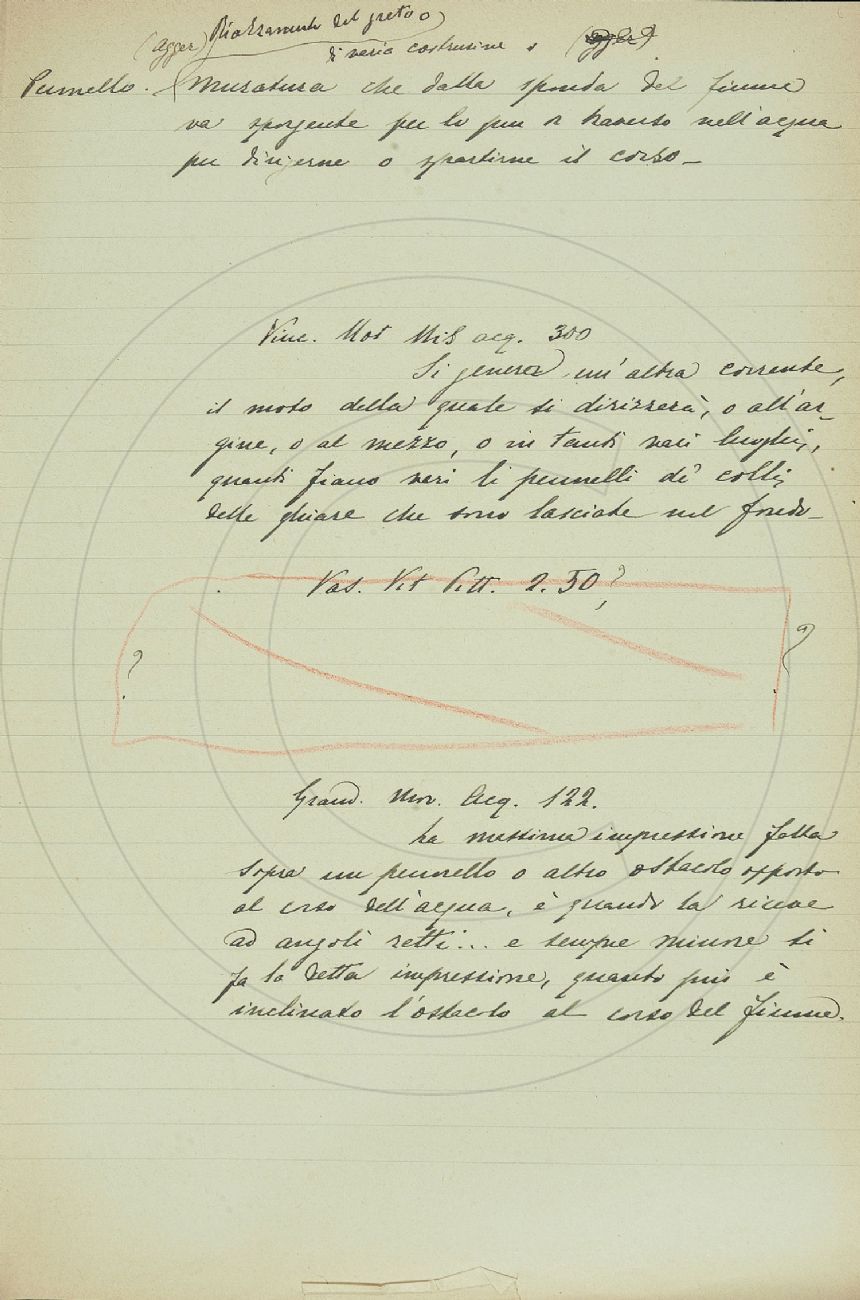 (Agger) Rialzamento del greto o
di varia costruzione
Pennello. Muratura che dalla sponda del fiume
va sporgente per lo più a traverso nell'acqua
per dirigerne o spartirne il corso —
Vinc. Mot Mis acq. 300
Si genera un'altra corrente,
il moto della quale si dirizzerà, o all'ar-
gine, o al mezzo, o in tanti vari luoghi,
quanti fiano vari li pennelli de' colli
delle ghiare che sono lasciate nel fondo —
Vas. Vit Pitt. 2. 50?
? ?
Grand. Mov. Acq. 122.
La massima impressione fatta
sopra un pennello o altro ostacolo opposto
al corso dell'acqua, è quando la riceve
ad angoli retti... e sempre minore si
fa la detta impressione, quanto più è
inclinato l'ostacolo al corso del fiume.